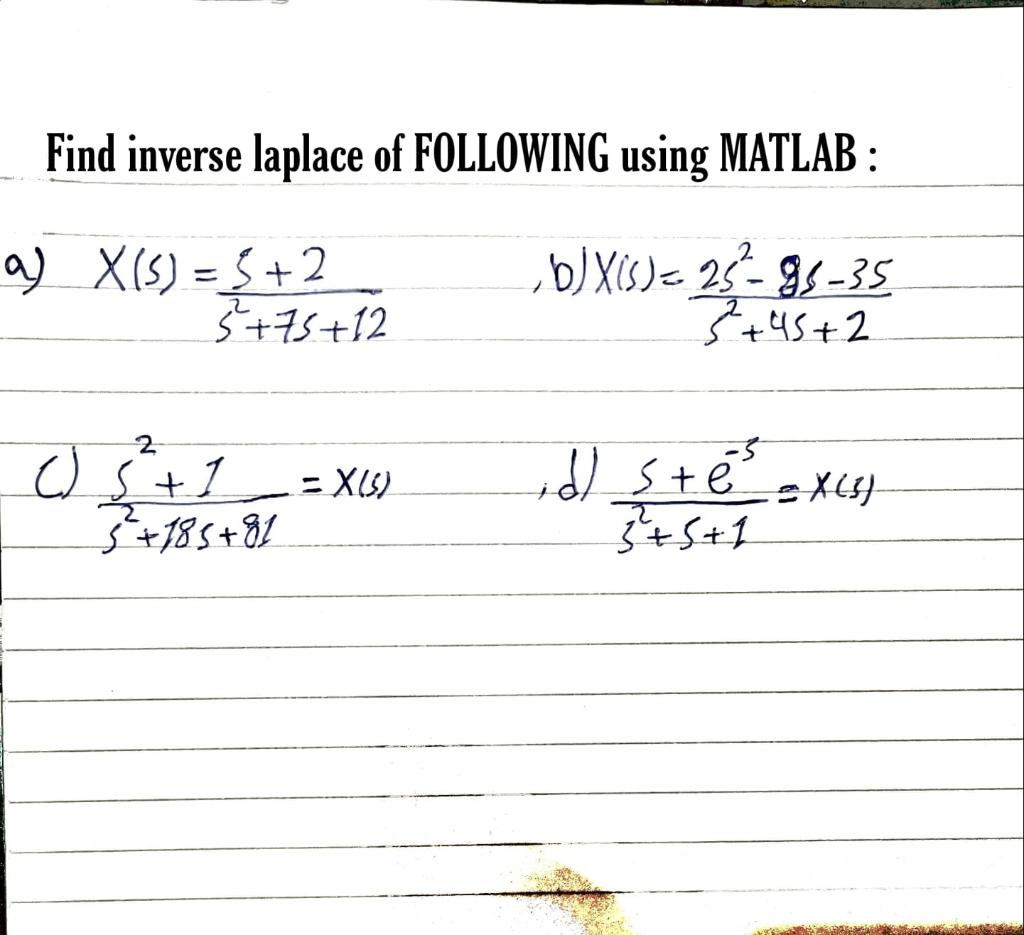 Find inverse laplace of FOLLOWING using MATLAB :
a) X(s) = s + 2 / s²+7s+12 , b) X(s) = 2s²-9s-35 / s²+4s+2
c) s²+1 / s²+18s+81 = X(s) , d) s+e⁻ˢ / s²+s+1 = X(s)